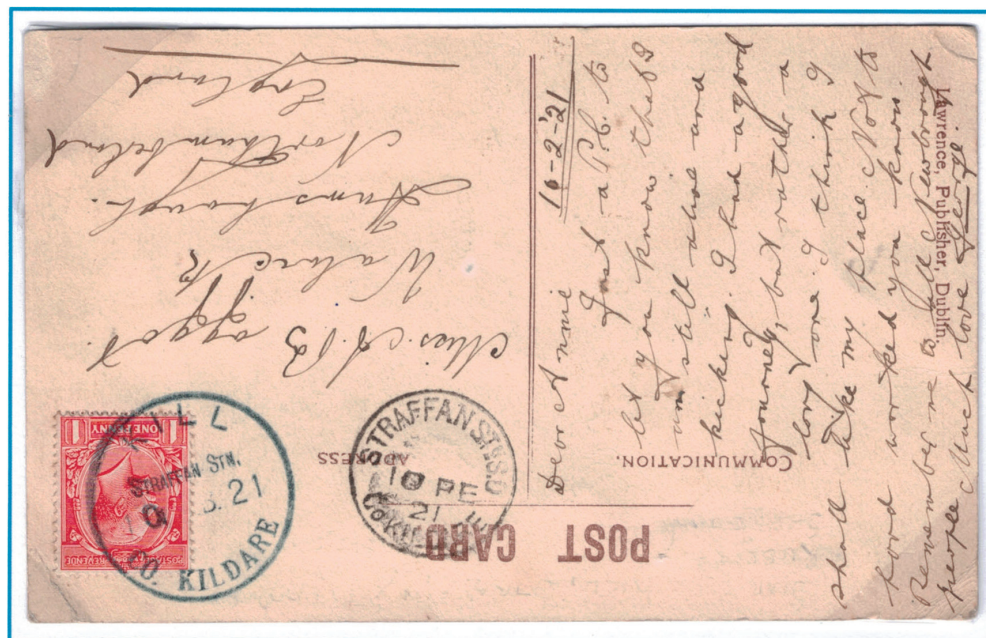 POST CARD
COMMUNICATION.
ADDRESS
Lawrence, Publisher, Dublin.
16-2-21
Dear Annie
Just a P.C. to
let you know that I
am still alive and
kicking. I had a good
journey, but rather a
long one. I think I
shall like my place. Not to
hard worked you know.
Remember me to all Newbrough
people Much love George
Miss. A. B
Walwick
Humshaugh.
Northumberland
England
ONE PENNY
KILL
STRAFFAN STN.
21
CO. KILDARE
STRAFFAN STN S.O
21
Co KILDARE